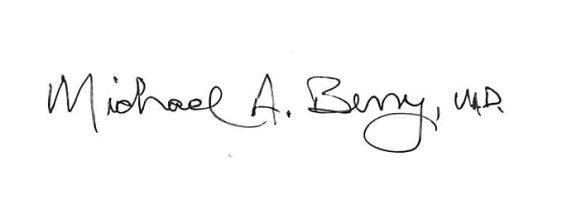 Michael A. Berry, M.D.